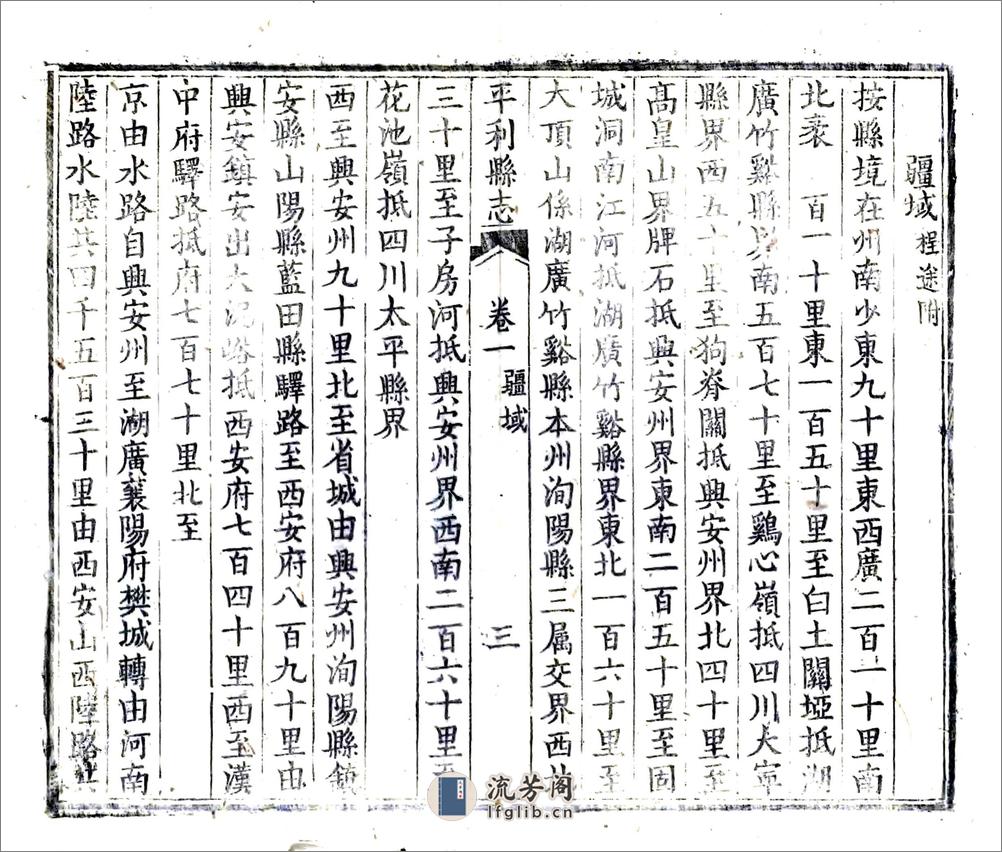 疆域程途附
按縣境在州南少東九十里東西廣二百一十里南
北袤 百一十里東一百五十里至白土關埡抵湖
廣竹谿縣界南五百七十里至鷄心嶺抵四川大寧
縣界西五十里至狗脊關抵興安州界北四十里至
高皇山界牌石抵興安州界東南二百五十里至固
城洞南江河抵湖廣竹谿縣界東北一百六十里至
大頂山係湖廣竹谿縣本州洵陽縣三属交界西北
平利縣志 卷一 疆域 三
三十里至子房河抵興安州界西南二百六十里至
花池嶺抵四川太平縣界
西至興安州九十里北至省城由興安州洵陽縣鎮
安縣山陽縣藍田縣驛路至西安府八百九十里由
興安鎮安出大峪抵西安府七百四十里西至漢
中府驛路抵府七百七十里北至
京由水路自興安州至湖廣襄陽府樊城轉由河南
陸路水陸共四千五百三十里由西安山西陸路共
流芳阁
lfglib.cn